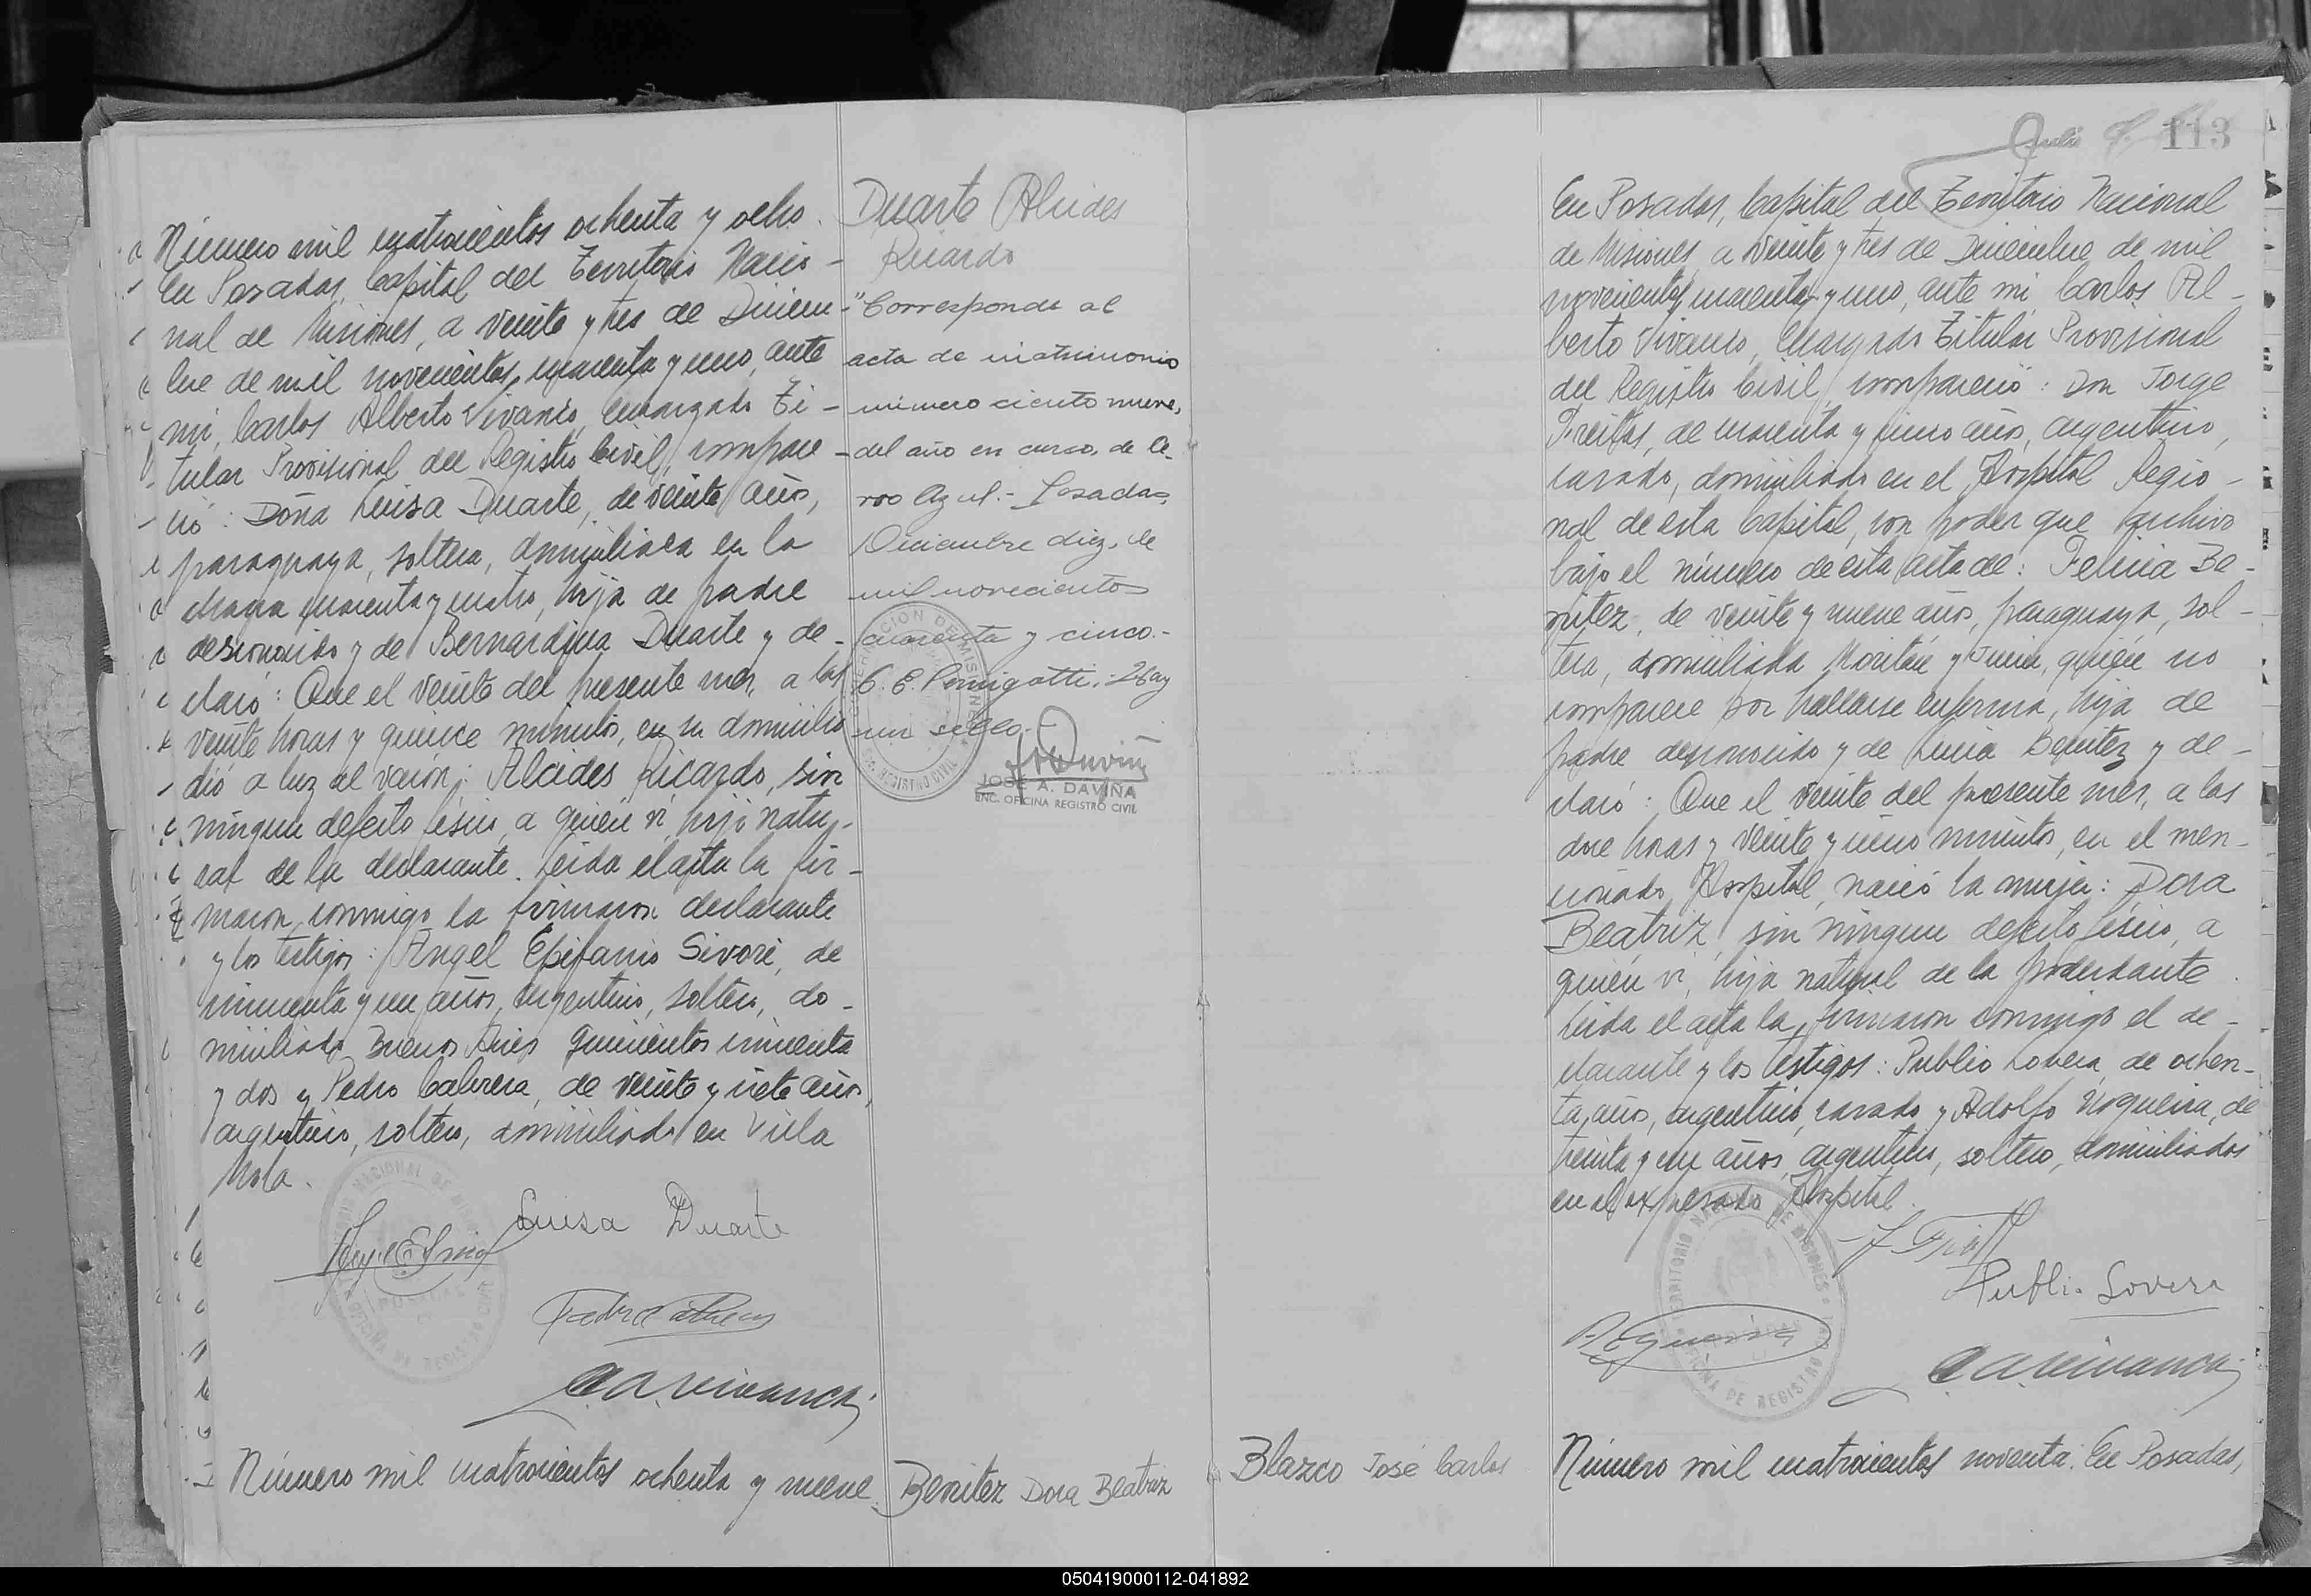 Número mil cuatrocientos ochenta y ocho.
En Posadas, Capital del Territorio Nacio-
nal de Misiones, a veinte y tres de Diciem-
bre de mil novecientos cuarenta y uno, ante
mi, Carlos Alberto Vivanco, encargado Ti-
tular Provisional del Registro Civil, compare-
ció: Doña Luisa Duarte, de veinte años,
paraguaya, soltera, domiciliada en la
chacra cuarenta y cuatro, hija de padre
desconocido y de Bernardina Duarte y de-
claró: Que el veinte del presente mes, a las
veinte horas y quince minutos, en su domicilio
dió a luz al varón: Alcides Ricardo, sin
ningun defecto físico, a quién ví, hijo natu-
ral de la declarante. Leida el acta la fir-
maron conmigo la firmaron declarante
y los testigos: Angel Epifanio Sivori, de
cincuenta y un años, argentino, soltero, do-
miciliado Buenos Aires quinientos cincuenta
y dos y Pedro Cabrera, de veinte y siete años,
argentino, soltero, domiciliado en Villa
Mola.
Luisa Duarte
C.A. Vivanco
Número mil cuatrocientos ochenta y nueve.
Duarte Alcides
Ricardo
"Corresponde al
acta de matrimonio
número ciento nueve,
del año en curso, de Ce-
rro Azul.- Posadas,
Diciembre diez, de
mil novecientos
cuarenta y cinco.-
Hay
un sello.-
JOSÉ A. DAVIÑA
ENC. OFICINA REGISTRO CIVIL
Benitez Dora Beatriz
Blazco José Carlos
113
En Posadas, Capital del Territorio Nacional
de Misiones, a veinte y tres de Diciembre de mil
novecientos cuarenta y uno, ante mi Carlos Al-
berto Vivanco, encargado Titular Provisional
del Registro Civil, compareció: Don Jorge
Freitas, de cuarenta y cinco años, argentino,
casado, domiciliado en el Hospital Regio-
nal de esta Capital, con poder que archivo
bajo el número de esta acta de: Felicia Be-
nitez, de veinte y nueve años, paraguaya, sol-
tera, domiciliada y Junin, quién no
comparece por hallarse enferma, hija de
padre desconocido y de Lucia Benitez y de-
claró: Que el veinte del presente mes, a las
doce horas y veinte y cinco minutos, en el men-
cionado Hospital, nació la mujer: Dora
Beatriz, sin ningun defecto físico, a
quién ví, hija natural de la poderdante.
Leida el acta la firmaron conmigo el de-
clarante y los testigos: Publio Lovera, de ochen-
ta años, argentino, casado y Adolfo Nogueira, de
treinta y un años, argentino, soltero, domiciliados
en el expresado Hospital.
Publio Lovera
C.A. Vivanco
Número mil cuatrocientos noventa. En Posadas,
050419000112-041892